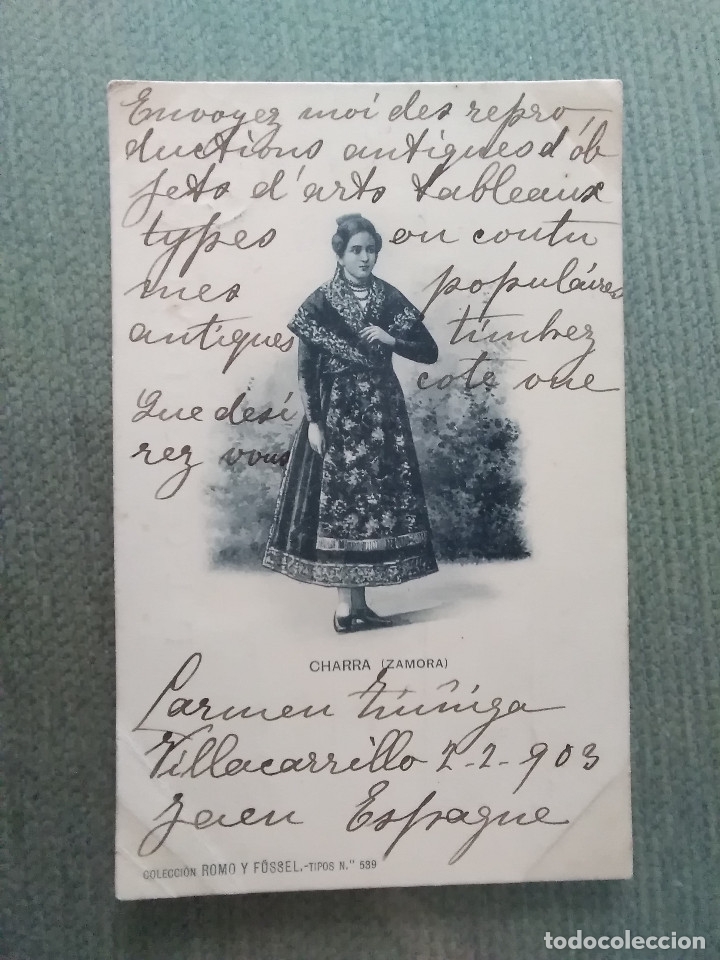 Envoyez moi des repro
ductions antiques d'ób
jets d'arts tableaux
types ou coutu
mes populáires
antiques timbrez
coté vue
Que desi
rez vous
CHARRA (ZAMORA)
Carmen Zúñiga
Villacarrillo 2-2-903
Jaen Espagne
COLECCIÓN ROMO Y FÜSSEL.-TIPOS N.º 589
todocoleccion